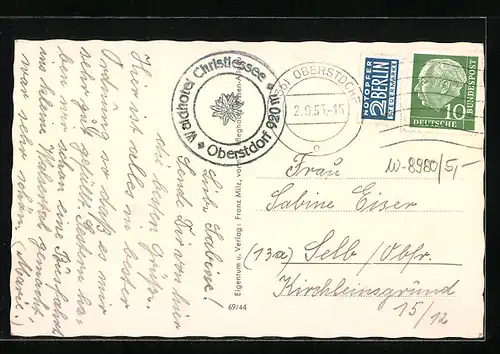 Liebe Sabine!
Sende Dir von hier
die besten Grüße.
Hier ist alles in bester
Ordnung so daß es mir
sehr gut gefällt. Gestern ha-
ben wir schon eine Busfahrt
ins kleine Walsertal gemacht.
war sehr schön. (Marie.)
Waldhotel Christlessee
Oberstdorf 920 m
Eigentum u. Verlag: Franz Milz,
69/44
OBERSTDORF
2.9.55-15
NOTOPFER
2 BERLIN
STEUERMARKE
10
DEUTSCHE
BUNDESPOST
W-8980/5,-
Frau
Sabine Eiser
(13a) Selb/Obfr.
Kirchleinsgründ
15/12